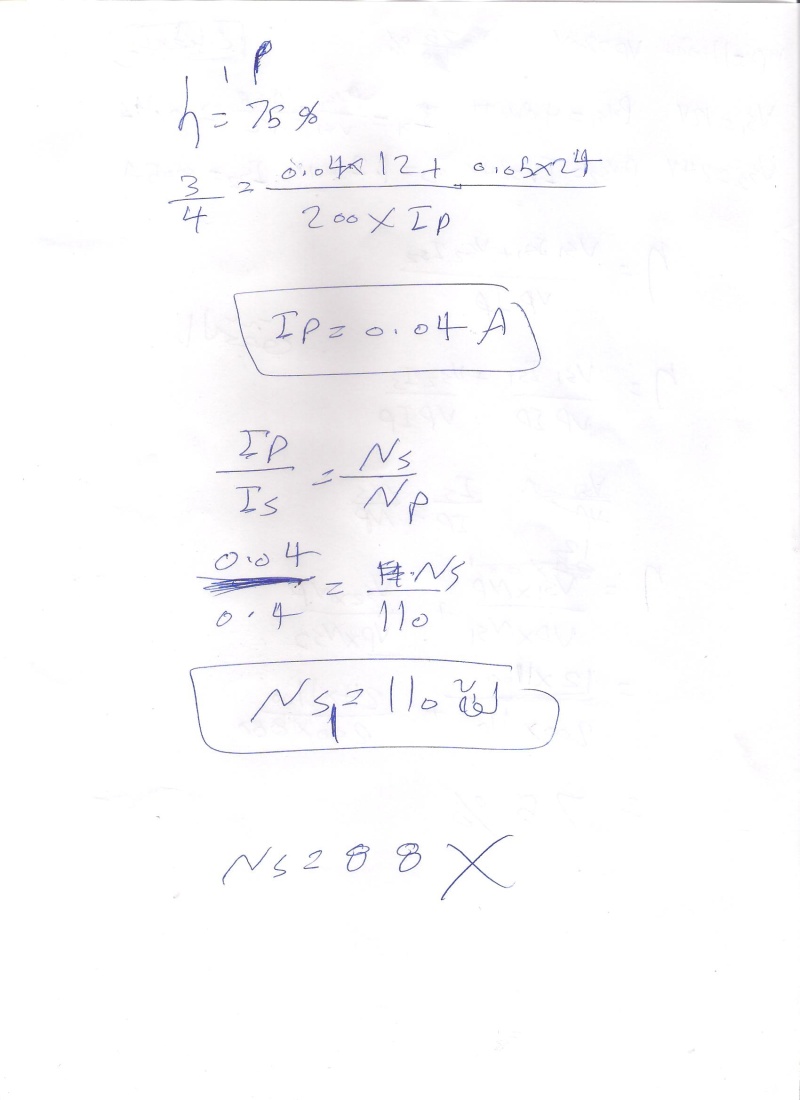 P
h = 75 %
3/4 = 0.04 × 12 + 0.05 × 24 / 200 × IP
IP = 0.04 A
IP/Is = Ns/NP
0.04/0.4 = Ns/110
Ns1 = 110
Ns = 88 X